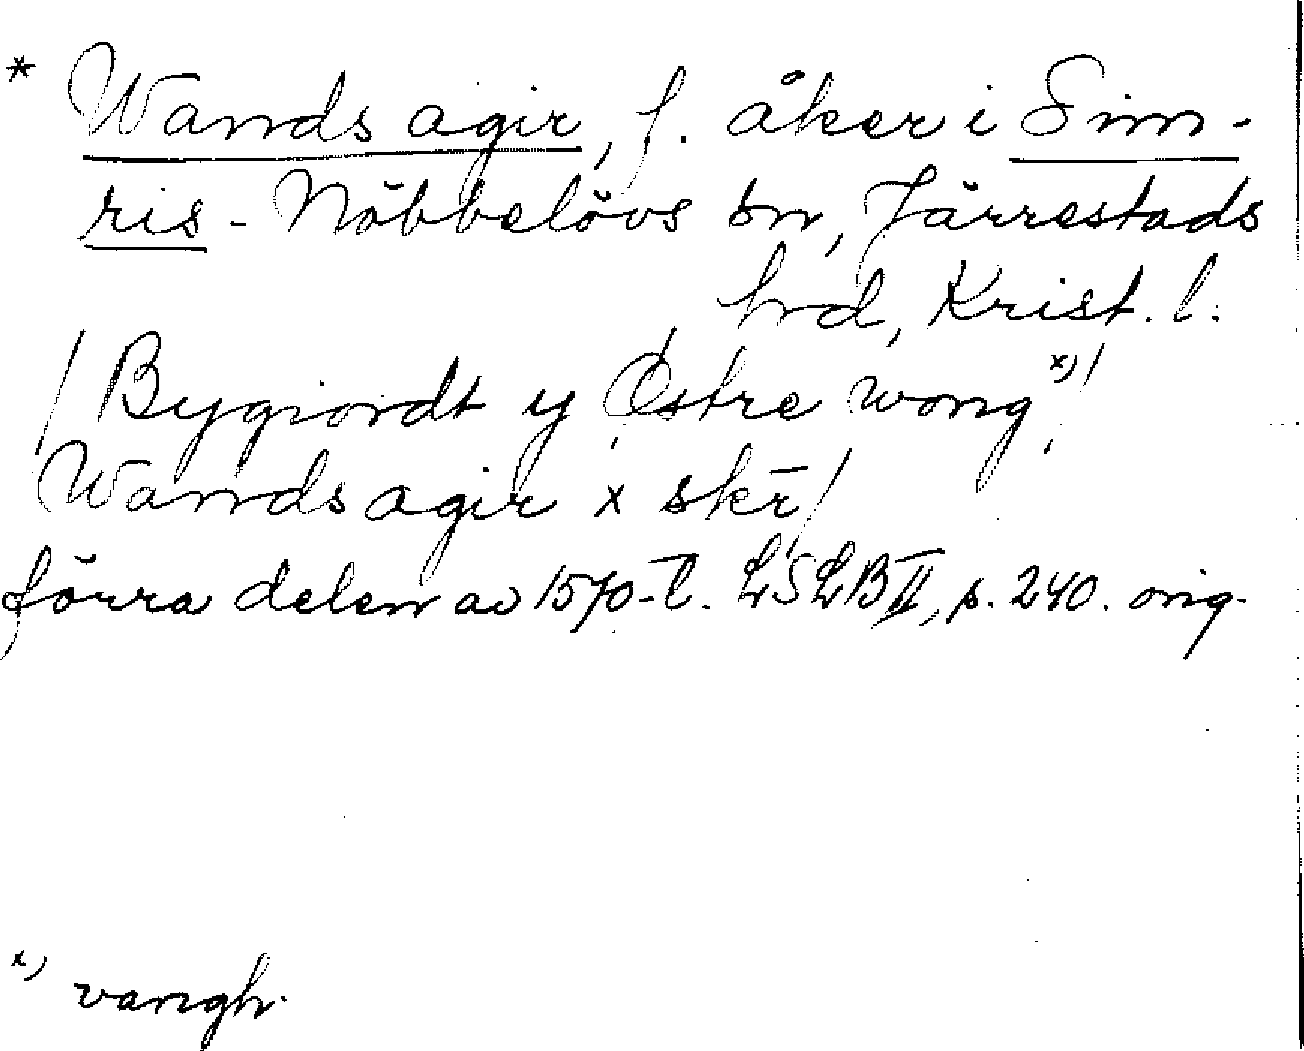 * Wands agir, f. åker i Sim-
ris - Nöbbelövs sn, Järrestads
hd, Krist. l.
/ Bygiordt y Østre wong x) /,
Wands agir x skr̄ /
förra delen av 1570-t. LSLB II, p. 240. orig.
x) vangh.